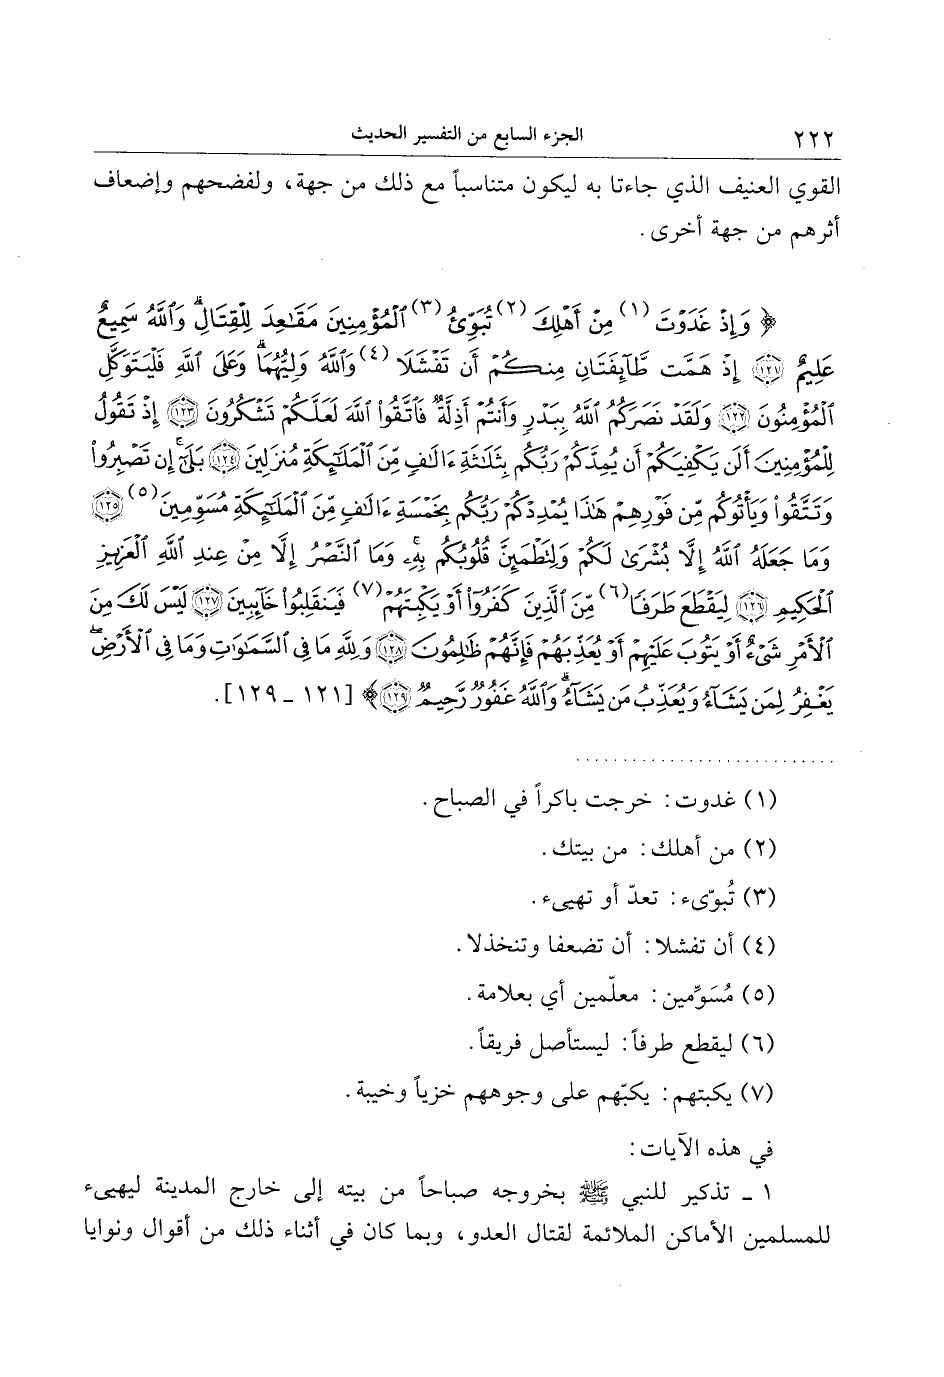 ٢٢٢ الجزء السابع من التفسير الحديث
القوي العنيف الذي جاءتا به ليكون متناسباً مع ذلك من جهة، ولفضحهم وإضعاف
أثرهم من جهة أخرى.
﴿ وَإِذْ غَدَوْتَ (١) مِنْ أَهْلِكَ (٢) تُبَوِّئُ (٣) الْمُؤْمِنِينَ مَقَاعِدَ لِلْقِتَالِ ۗ وَاللَّهُ سَمِيعٌ
عَلِيمٌ ﴿١٢١﴾ إِذْ هَمَّت طَّائِفَتَانِ مِنكُمْ أَن تَفْشَلَا (٤) وَاللَّهُ وَلِيُّهُمَا ۗ وَعَلَى اللَّهِ فَلْيَتَوَكَّلِ
الْمُؤْمِنُونَ ﴿١٢٢﴾ وَلَقَدْ نَصَرَكُمُ اللَّهُ بِبَدْرٍ وَأَنتُمْ أَذِلَّةٌ ۖ فَاتَّقُوا اللَّهَ لَعَلَّكُمْ تَشْكُرُونَ ﴿١٢٣﴾ إِذْ تَقُولُ
لِلْمُؤْمِنِينَ أَلَن يَكْفِيَكُمْ أَن يُمِدَّكُمْ رَبُّكُم بِثَلَاثَةِ ءَالَافٍ مِّنَ الْمَلَائِكَةِ مُنزَلِينَ ﴿١٢٤﴾ بَلَىٰ ۚ إِن تَصْبِرُوا
وَتَتَّقُوا وَيَأْتُوكُم مِّن فَوْرِهِمْ هَٰذَا يُمْدِدْكُمْ رَبُّكُم بِخَمْسَةِ ءَالَافٍ مِّنَ الْمَلَائِكَةِ مُسَوِّمِينَ (٥) ﴿١٢٥﴾
وَمَا جَعَلَهُ اللَّهُ إِلَّا بُشْرَىٰ لَكُمْ وَلِتَطْمَئِنَّ قُلُوبُكُم بِهِ ۗ وَمَا النَّصْرُ إِلَّا مِنْ عِندِ اللَّهِ الْعَزِيزِ
الْحَكِيمِ ﴿١٢٦﴾ لِيَقْطَعَ طَرَفًا (٦) مِّنَ الَّذِينَ كَفَرُوا أَوْ يَكْبِتَهُمْ (٧) فَيَنقَلِبُوا خَائِبِينَ ﴿١٢٧﴾ لَيْسَ لَكَ مِنَ
الْأَمْرِ شَيْءٌ أَوْ يَتُوبَ عَلَيْهِمْ أَوْ يُعَذِّبَهُمْ فَإِنَّهُمْ ظَالِمُونَ ﴿١٢٨﴾ وَلِلَّهِ مَا فِي السَّمَاوَاتِ وَمَا فِي الْأَرْضِ ۚ
يَغْفِرُ لِمَن يَشَاءُ وَيُعَذِّبُ مَن يَشَاءُ ۚ وَاللَّهُ غَفُورٌ رَّحِيمٌ ﴿١٢٩﴾ ﴾ [١٢١ ـ ١٢٩].
(١) غدوت: خرجت باكراً في الصباح.
(٢) من أهلك: من بيتك.
(٣) تُبوّىء: تعدّ أو تهيىء.
(٤) أن تفشلا: أن تضعفا وتنخذلا.
(٥) مُسَوِّمين: معلّمين أي بعلامة.
(٦) ليقطع طرفاً: ليستأصل فريقاً.
(٧) يكبتهم: يكبّهم على وجوههم خزياً وخيبة.
في هذه الآيات:
١ ـ تذكير للنبي ﷺ بخروجه صباحاً من بيته إلى خارج المدينة ليهيىء
للمسلمين الأماكن الملائمة لقتال العدو، وبما كان في أثناء ذلك من أقوال ونوايا